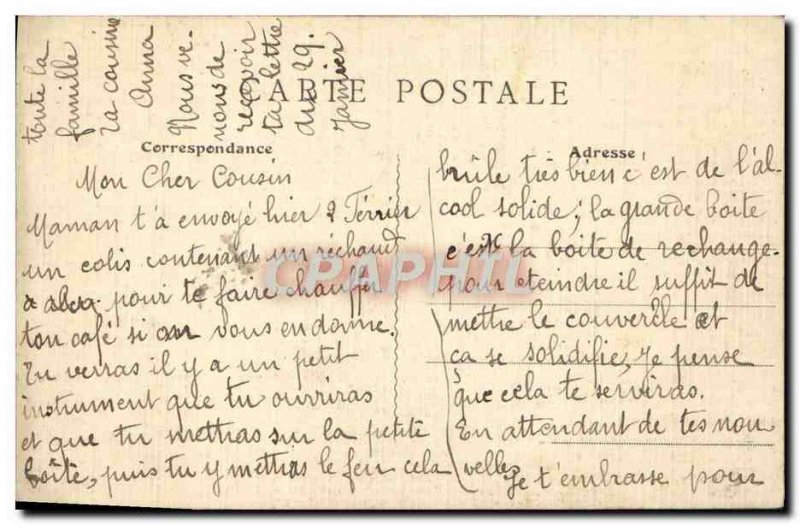 CARTE POSTALE
Correspondance
Adresse
Mon Cher Cousin
Maman t'a envoyé hier 2 Février
un colis contenant un réchaud
pour te faire chauffer
ton café si on vous en donne.
Tu verras il y a un petit
instrument que tu ouvriras
et que tu mettras sur la petite
boîte, puis tu y mettras le feu cela
brûle très bien c'est de l'al-
cool solide; la grande boite
c'est la boite de rechange.
pour eteindre il suffit de
mettre le couvercle et
ca se solidifie, Je pense
que cela te serviras.
En attendant de tes nou
velles Je t'embrasse pour
toute la
famille
ta cousine
Anna
Nous ve-
nons de
recevoir
ta lettre
du 29.
Janvier
CPAPHIL